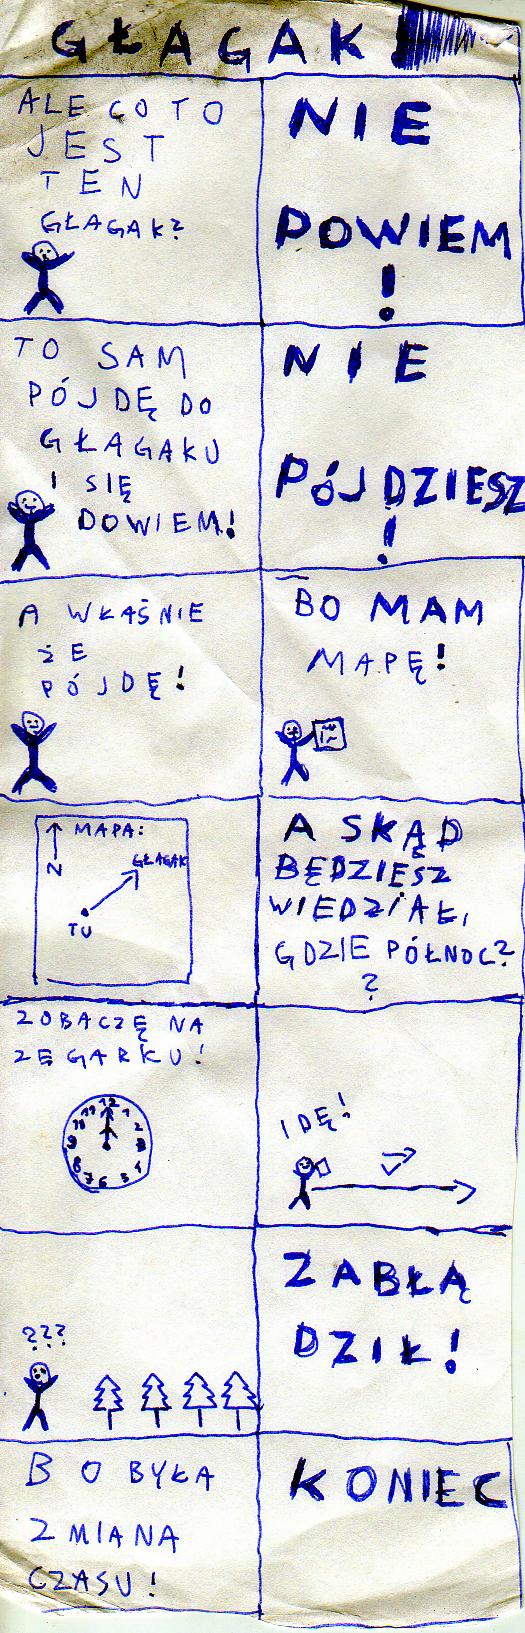 GŁAGAK
ALE CO TO
JEST
TEN
GŁAGAK?
NIE
POWIEM
!
TO SAM
PÓJDĘ DO
GŁAGAKU
I SIĘ
DOWIEM!
NIE
PÓJDZIESZ
!
A WŁAŚNIE
ŻE
PÓJDĘ!
BO MAM
MAPĘ!
MAPA:
N
GŁAGAK
TU
A SKĄD
BĘDZIESZ
WIEDZIAŁ,
GDZIE PÓŁNOC?
?
ZOBACZĘ NA
ZEGARKU!
12
11 1
10 2
9 3
8 4
7 6 5
IDĘ!
???
ZABŁĄ
DZIŁ!
BO BYŁA
ZMIANA
CZASU!
KONIEC